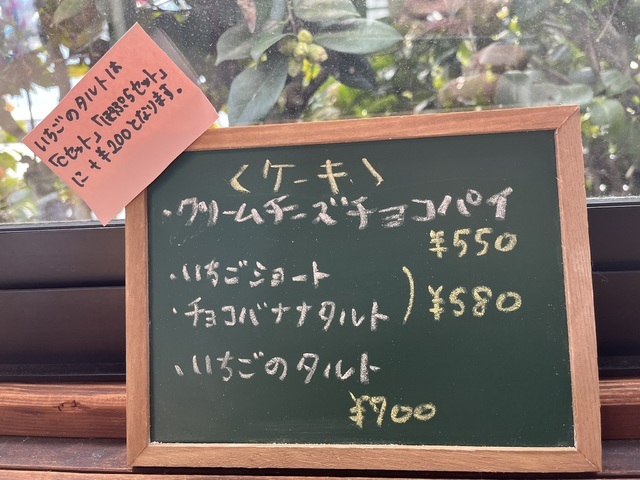 いちごのタルトは
「Cセット」「ほほほらセット」
に +¥200となります。
〈ケーキ〉
・クリームチーズチョコパイ
¥550
・いちごショート
・チョコバナナタルト ) ¥580
・いちごのタルト
¥700